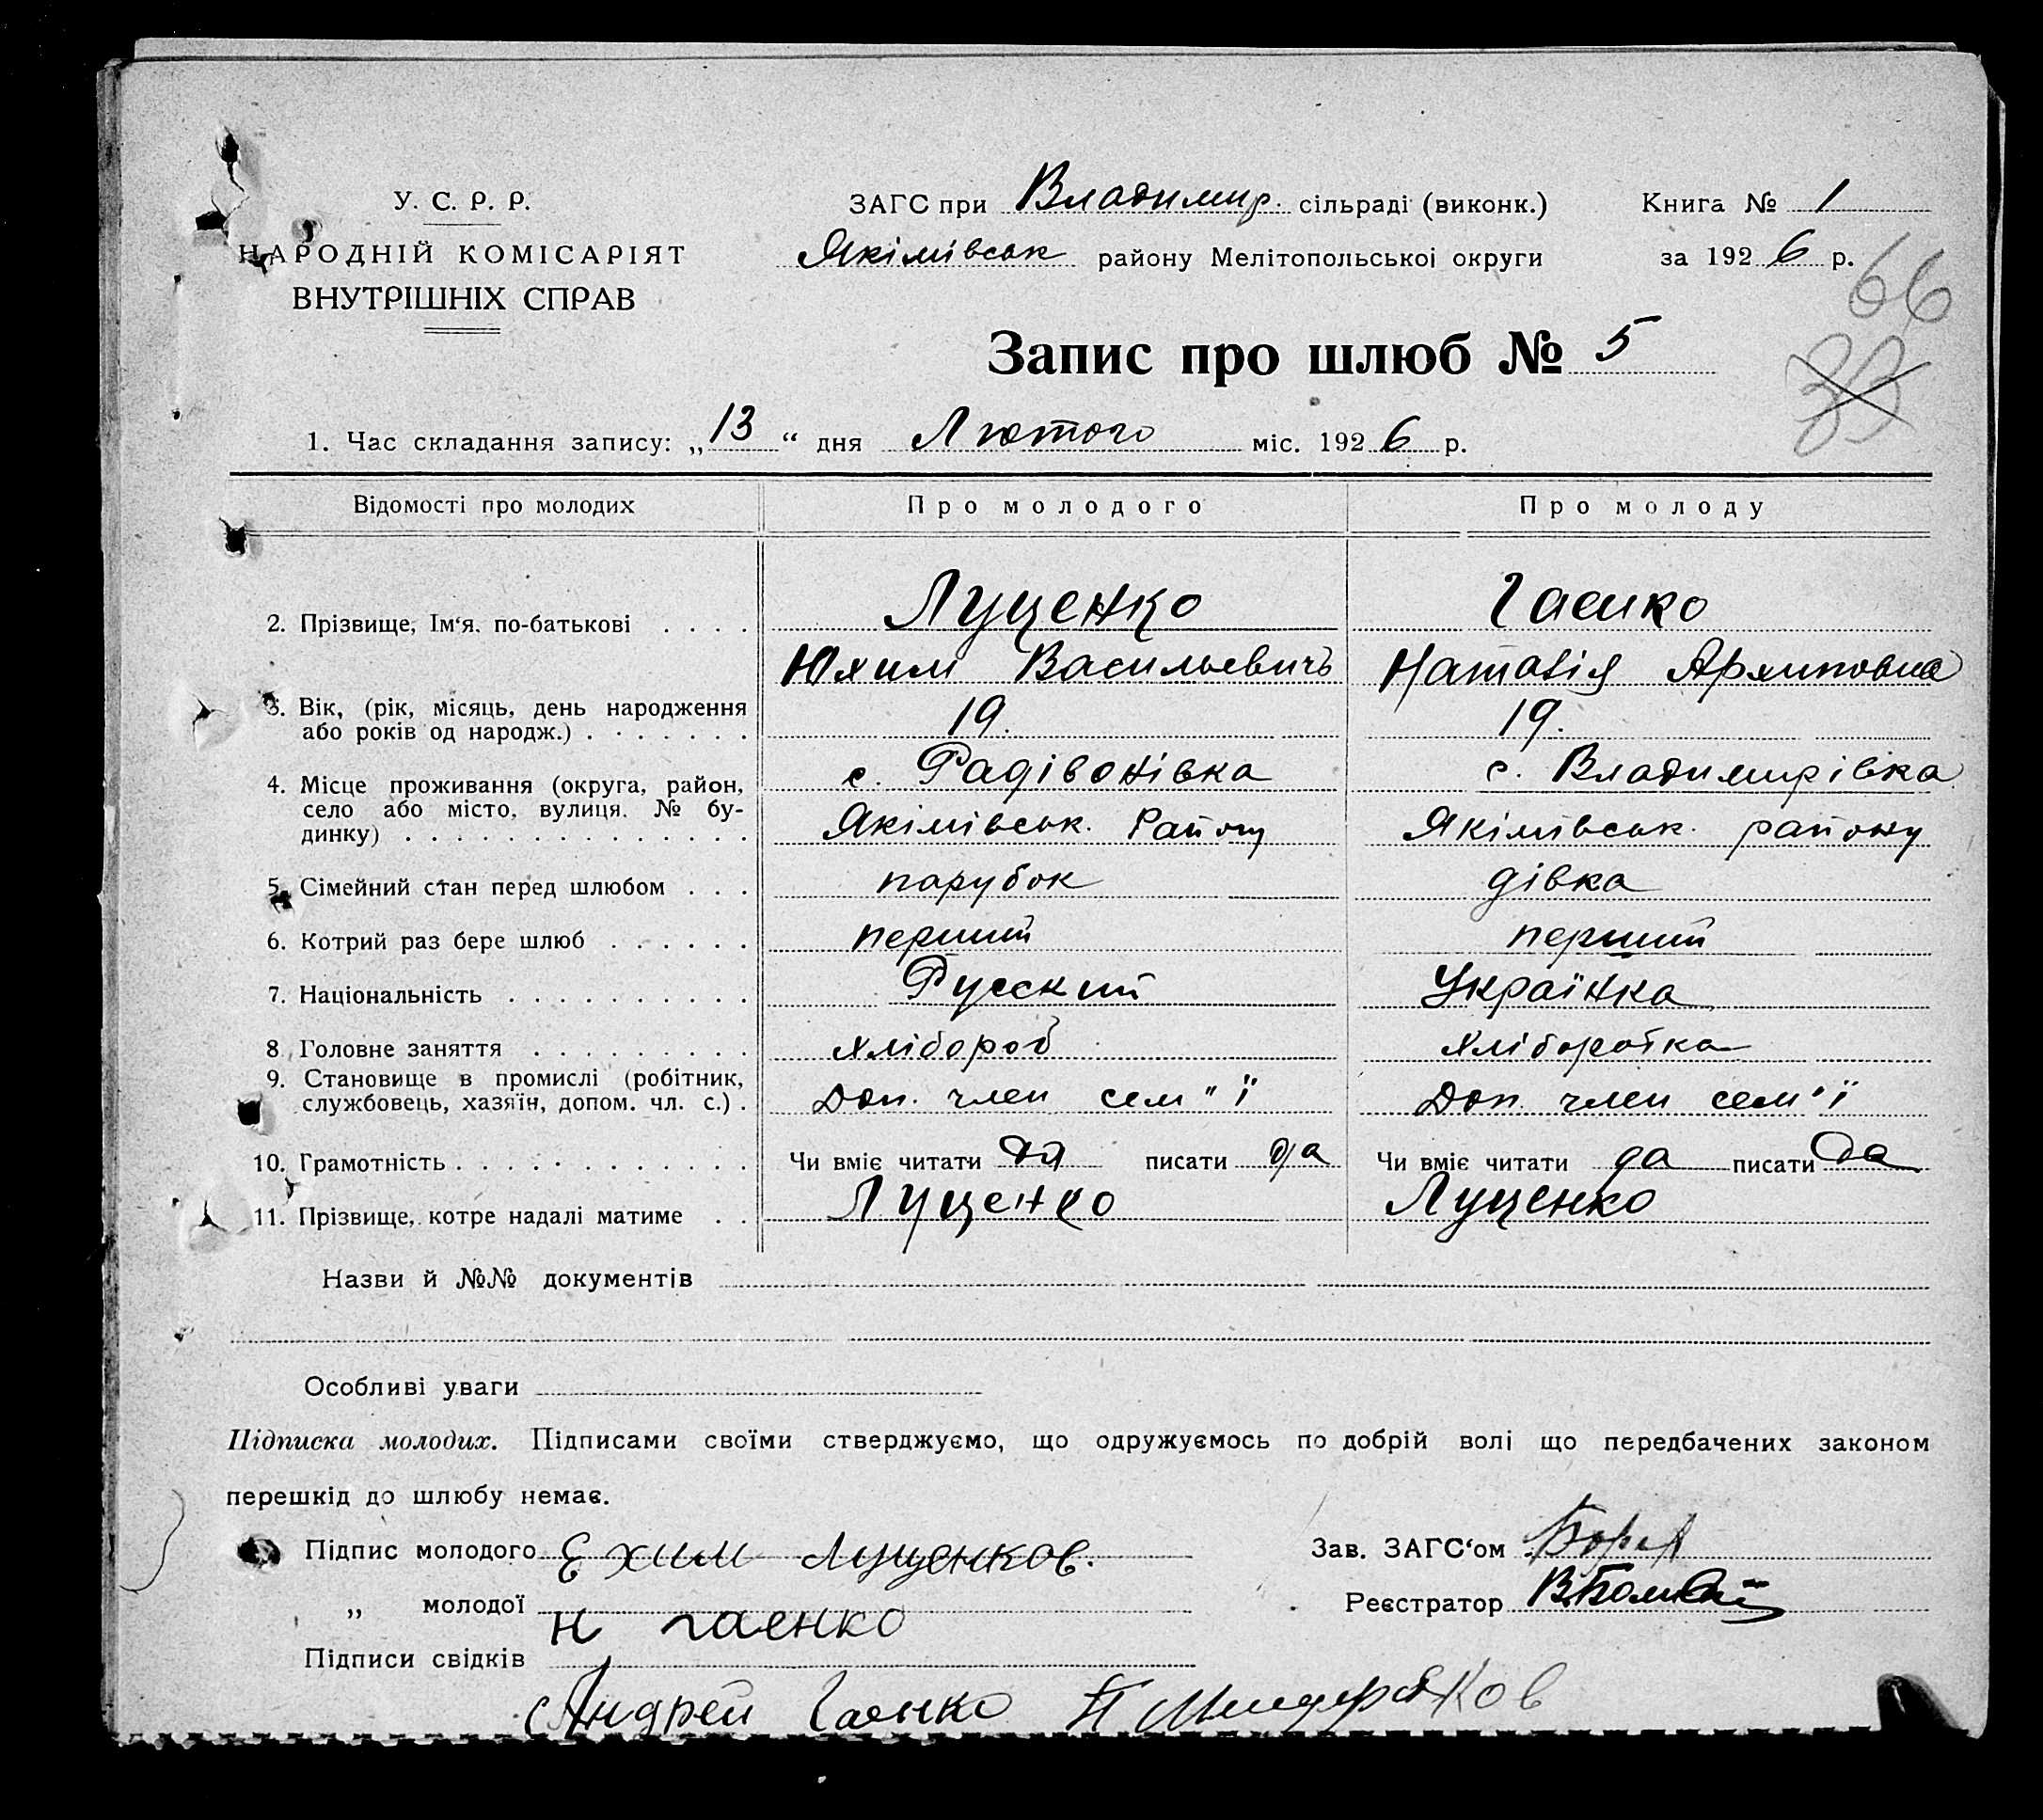 У. С. Р. Р.
НАРОДНІЙ КОМІСАРІЯТ
ВНУТРІШНІХ СПРАВ
ЗАГС при Владимир. сільраді (виконк.)
Якімівськ району Мелітопольської округи
Книга № 1
за 1926 р.
66
33
Запис про шлюб № 5
1. Час складання запису: „13“ дня Лютого міс. 1926 р.
Відомості про молодих Про молодого Про молоду
2. Прізвище, Ім‘я. по-батькові . . . . Луценко Гаєнко
Юхим Васильевичъ Наталія Архиповна
3. Вік, (рік, місяць, день народження
або років од народж.) . . . . . . . 19. 19.
4. Місце проживання (округа, район,
село або місто, вулиця. № бу-
динку) . . . . . . . . . . . . . .
с. Радівонівка с. Владимирівка
Якімівськ. Району Якімівськ. району
5. Сімейний стан перед шлюбом . . . парубок дівка
6. Котрий раз бере шлюб . . . . . . перший перший
7. Національність . . . . . . . . . . Русский Українка
8. Головне заняття . . . . . . . . . хлібороб хліборобка
9. Становище в промислі (робітник,
службовець, хазяїн, допом. чл. с.) . Доп. член сем"ї Доп. член сем'ї
10. Грамотність . . . . . . . . . . . . Чи вміє читати да писати да Чи вміє читати да писати да
11. Прізвище, котре надалі матиме . . Луценко Луценко
Назви й №№ документів
Особливі уваги
Підписка молодих. Підписами своїми стверджуємо, що одружуємось по добрій волі що передбачених законом
перешкід до шлюбу немає.
Підпис молодого Ехим Луценков.
Зав. ЗАГС‘ом
„ молодої Н гаенко
Реєстратор
Підписи свідків
Андрей Гаенко П